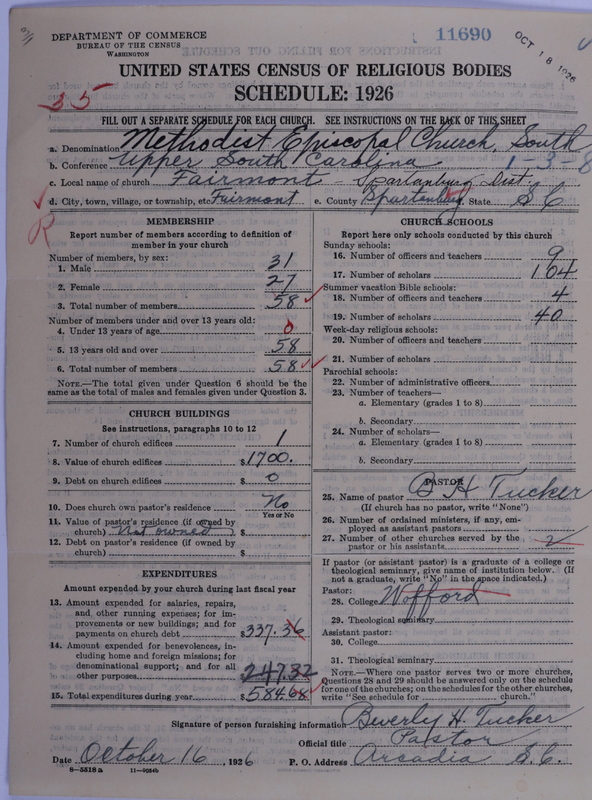 DEPARTMENT OF COMMERCE
BUREAU OF THE CENSUS
WASHINGTON
11690
OCT 18 1926
UNITED STATES CENSUS OF RELIGIOUS BODIES
SCHEDULE: 1926
35
FILL OUT A SEPARATE SCHEDULE FOR EACH CHURCH. SEE INSTRUCTIONS ON THE BACK OF THIS SHEET
a. Denomination Methodist Episcopal Church, South
b. Conference Upper South Carolina 1-3-8
c. Local name of church Fairmont - Spartanburg Dist.
d. City, town, village, or township, etc Fairmont e. County Spartanburg f. State S.C.
R
MEMBERSHIP
Report number of members according to definition of
member in your church
Number of members, by sex:
1. Male 31
2. Female 27
3. Total number of members 58
Number of members under and over 13 years old:
4. Under 13 years of age 0
5. 13 years old and over 58
6. Total number of members 58
NOTE.—The total given under Question 6 should be the
same as the total of males and females given under Question 3.
CHURCH BUILDINGS
See instructions, paragraphs 10 to 12
7. Number of church edifices 1
8. Value of church edifices $1700.
9. Debt on church edifices $ 0
10. Does church own pastor's residence No
Yes or No
11. Value of pastor's residence (if owned by
church) Not owned $
12. Debt on pastor's residence (if owned by
church) $
EXPENDITURES
Amount expended by your church during last fiscal year
13. Amount expended for salaries, repairs,
and other running expenses; for im-
provements or new buildings; and for
payments on church debt $337.36
14. Amount expended for benevolences, in-
cluding home and foreign missions; for
denominational support; and for all
other purposes 247.32
15. Total expenditures during year $584.68
CHURCH SCHOOLS
Report here only schools conducted by this church
Sunday schools:
16. Number of officers and teachers 9
17. Number of scholars 104
Summer vacation Bible schools:
18. Number of officers and teachers 4
19. Number of scholars 40
Week-day religious schools:
20. Number of officers and teachers
21. Number of scholars
Parochial schools:
22. Number of administrative officers
23. Number of teachers—
a. Elementary (grades 1 to 8)
b. Secondary
24. Number of scholars—
a. Elementary (grades 1 to 8)
b. Secondary
PASTOR
25. Name of pastor B H Tucker
(If church has no pastor, write "None")
26. Number of ordained ministers, if any, em-
ployed as assistant pastors
27. Number of other churches served by the
pastor or his assistants 2
If pastor (or assistant pastor) is a graduate of a college or
theological seminary, give name of institution below. (If
not a graduate, write "No" in the space indicated.)
Pastor:
28. College Wofford
29. Theological seminary
Assistant pastor:
30. College
31. Theological seminary
NOTE.—Where one pastor serves two or more churches,
Questions 28 and 29 should be answered only on the schedule
for one of the churches; on the schedules for the other churches,
write "See schedule for church."
Signature of person furnishing information Beverly H. Tucker
Official title Pastor
Date October 16, 1926 P. O. Address Arcadia S.C.
8-5518a 11-9054b